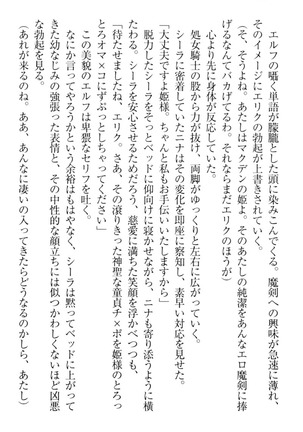 エルフの囁く単語が朦朧とした頭に染みこんでくる。魔剣への興味が急速に薄れ、
そのイメージにエリクの勃起が上書きされていく。
（そ、そうよね。あたしはマクデンの姫よ。そのあたしの純潔をあんなエロ魔剣に捧
げるなんてバカげてるわ。それならまだエリクのほうが）
心より先に身体が反応していた。
処女騎士の股から力が抜け、両脚がゆっくりと左右に広がっていく。
シーラに密着していたニナはその変化を即座に察知し、素早い対応を見せた。
「大丈夫ですよ姫様。ちゃんと私もお手伝いいたしますから」
脱力したシーラをそっとベッドに仰向けに寝かせながら、ニナも寄り添うように横
たわる。シーラを安心させるためだろう、慈愛に満ちた笑顔を浮かべつつも、
「待たせましたね、エリク。さあ、その滾りきった神聖な童貞チ×ポを姫様のとろっ
とろオマ×コにずぷっとしちゃってください」
この美貌のエルフは卑猥なセリフを吐く。
なにか言ってやろうかという余裕もはやなく、シーラは黙ってベッドに上がって
きた幼なじみの強張った表情と、その中性的な顔立ちには似つかわしくないほど凶悪
な勃起を見る。
（あれが来るのね。ああ、あんなに凄いの入ってきたらどうなるのかしら、あたし）